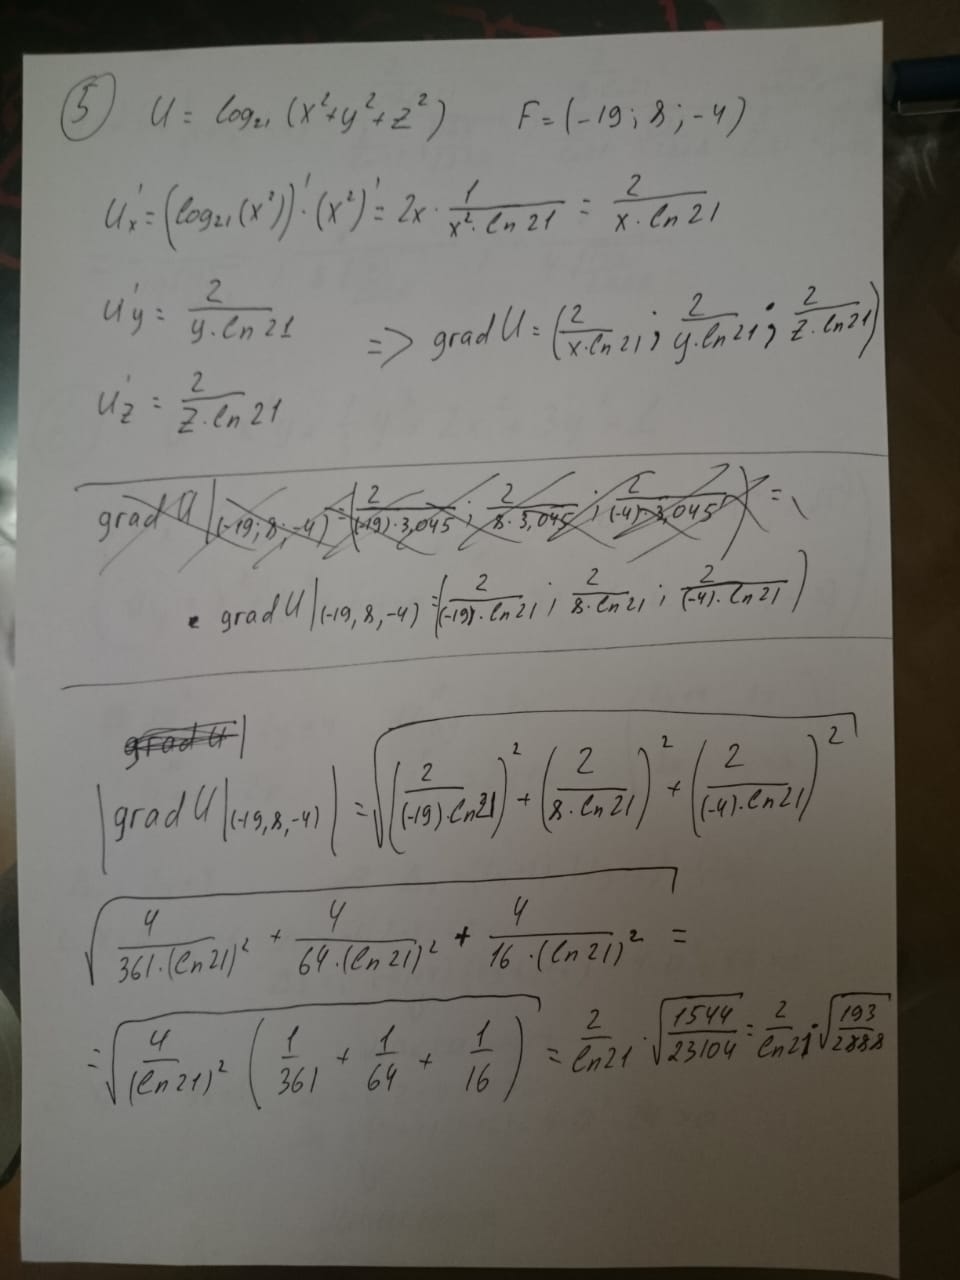 5 U = log₂₁ (x²+y²+z²) F = (-19; 8; -4)
U'x = (log₂₁(x²))' · (x²)' = 2x · 1/(x² · ln 21) = 2/(x · ln 21)
U'y = 2/(y · ln 21)
=> grad U = (2/(x · ln 21); 2/(y · ln 21); 2/(z · ln 21))
U'z = 2/(z · ln 21)
grad U|(-19; 8; -4) = (2/((-19) · 3,045); 2/(8 · 3,045); 2/((-4) · 3,045)) =
grad U|(-19, 8, -4) = (2/((-19) · ln 21); 2/(8 · ln 21); 2/((-4) · ln 21))
grad U|
|grad U|(-19, 8, -4)| = √((2/((-19) · ln 21))² + (2/(8 · ln 21))² + (2/((-4) · ln 21))²)
√(4/(361 · (ln 21)²) + 4/(64 · (ln 21)²) + 4/(16 · (ln 21)²)) =
= √(4/(ln 21)² (1/361 + 1/64 + 1/16)) = 2/ln 21 · √(1544/23104) = 2/ln 21 · √(193/2888)